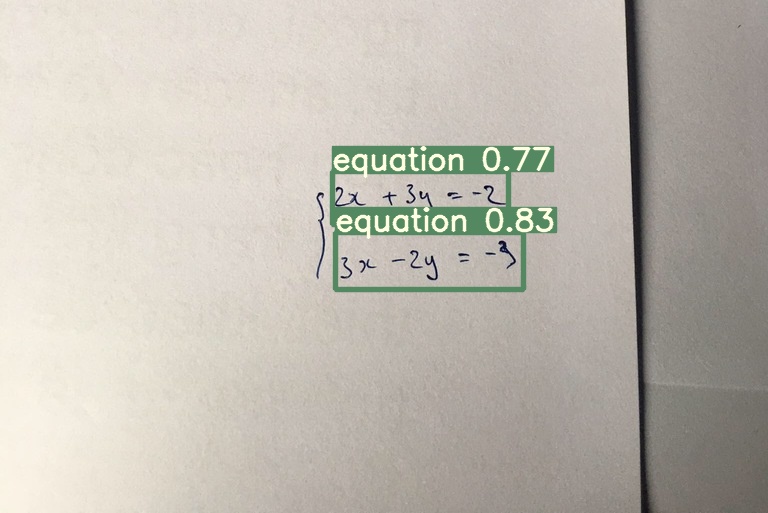 equation 0.77
2x + 3y = -2
equation 0.83
3x - 2y = -3